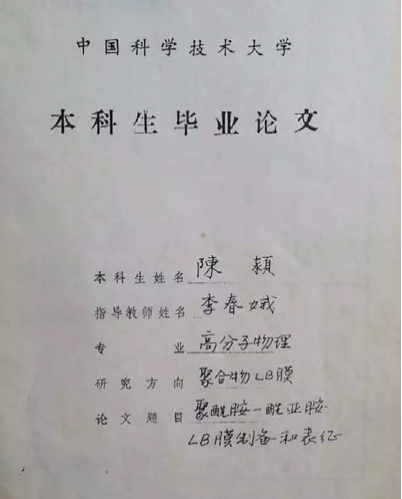 中国科学技术大学
本科生毕业论文
本科生姓名 陳 穎
指导教师姓名 李春娥
专 业 高分子物理
研究方向 聚合物LB膜
论文题目 聚酰胺-酰亚胺
LB膜制备和表征